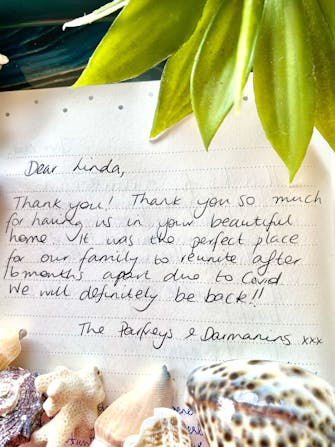 Dear Linda,
Thank you! Thank you so much
for having us in your beautiful
home. It was the perfect place
for our family to reunite after
16 months apart due to Covid.
We will definitely be back!!
The Parfreys & Darmanins xxx